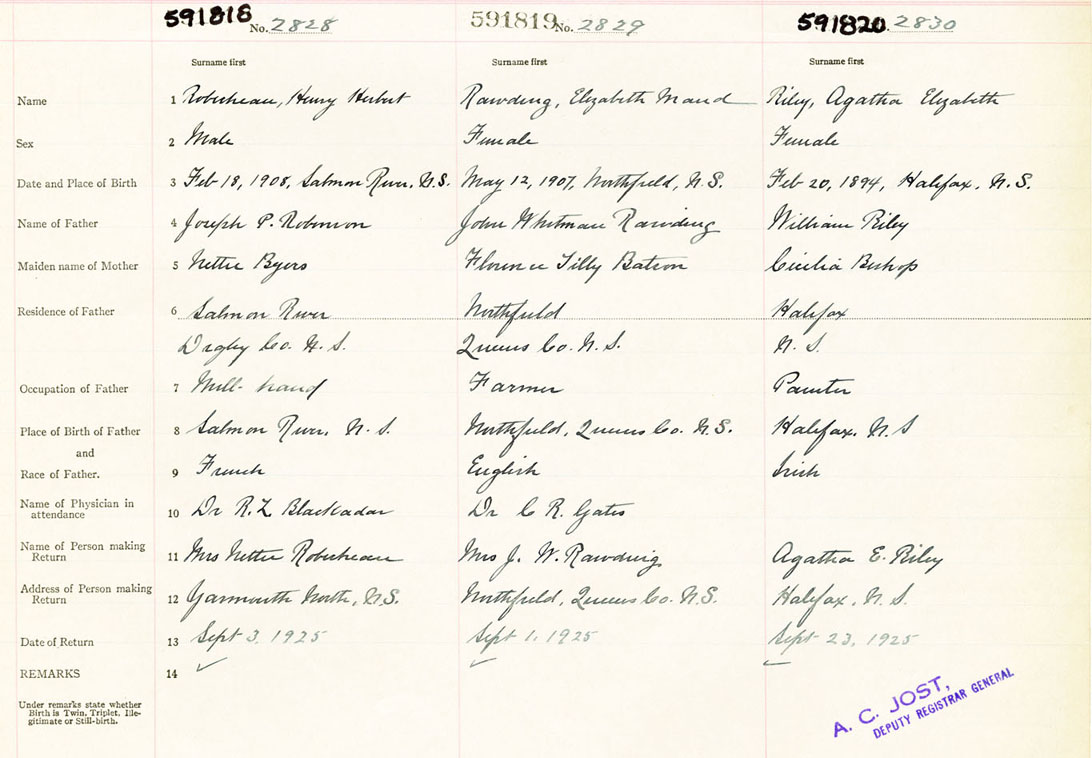 591818 No. 2828 591819 No. 2829 591820 2830
Surname first Surname first Surname first
Name 1 Robicheau, Henry Herbert Rawding, Elizabeth Maud Riley, Agatha Elizabeth
Sex 2 Male Female Female
Date and Place of Birth 3 Feb 18, 1908, Salmon River, N.S. May 12, 1907, Northfield, N.S. Feb 20, 1894, Halifax, N.S.
Name of Father 4 Joseph P. Robinson John Whitman Rawding William Riley
Maiden name of Mother 5 Nettie Byers Florence Tilly Batson Cecilia Bishop
Residence of Father 6 Salmon River Northfield Halifax
Digby Co. N.S. Queens Co. N.S. N.S.
Occupation of Father 7 Mill-hand Farmer Painter
Place of Birth of Father 8 Salmon River, N.S. Northfield, Queens Co. N.S. Halifax, N.S
and
Race of Father. 9 French English Irish
Name of Physician in
attendance 10 Dr R.L Blackadar Dr C R. Gates
Name of Person making
Return 11 Mrs Nettie Robicheau Mrs J. W. Rawding Agatha E. Riley
Address of Person making
Return 12 Yarmouth North, N.S. Northfield, Queens Co. N.S. Halifax, N.S.
Date of Return 13 Sept 3, 1925 Sept 1, 1925 Sept 23, 1925
REMARKS 14
Under remarks state whether
Birth is Twin, Triplet, Ille-
gitimate or Still-birth.
A. C. JOST,
DEPUTY REGISTRAR GENERAL